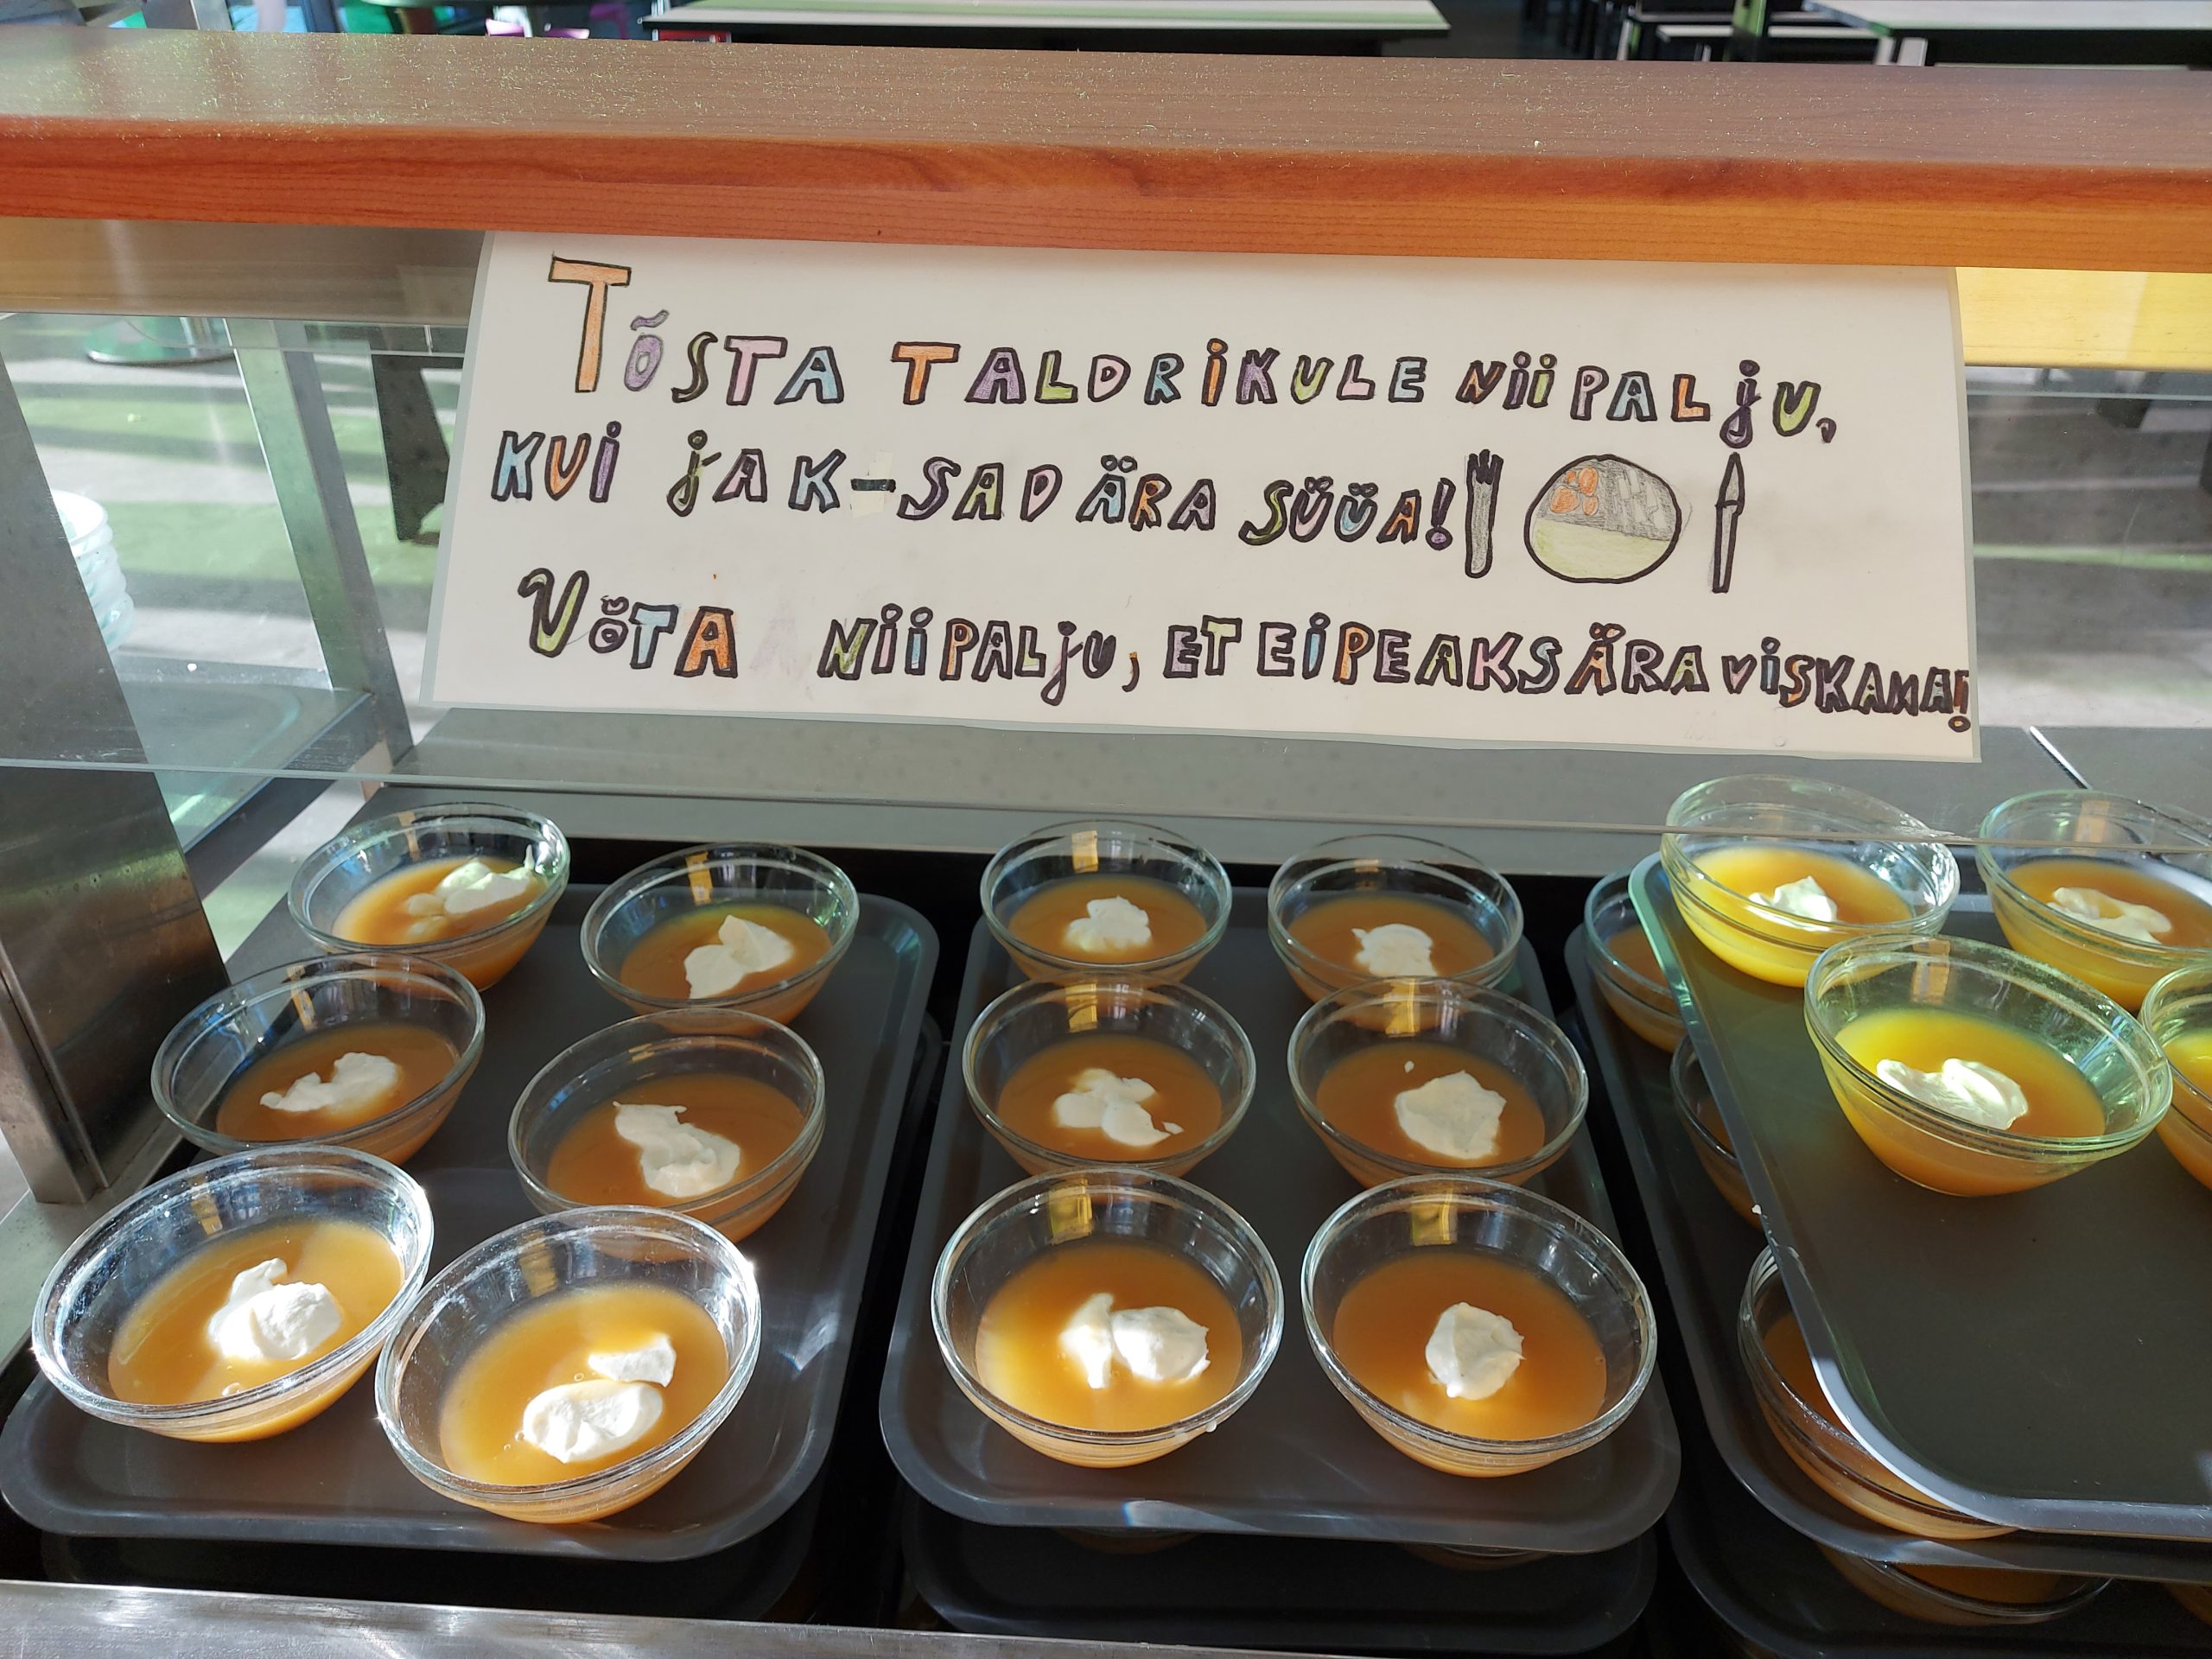 TÕSTA TALDRIKULE NII PALJU,
KUI JAK-SAD ÄRA SÜÜA!
VÕTA NII PALJU, ET EI PEAKS ÄRA VISKAMA!